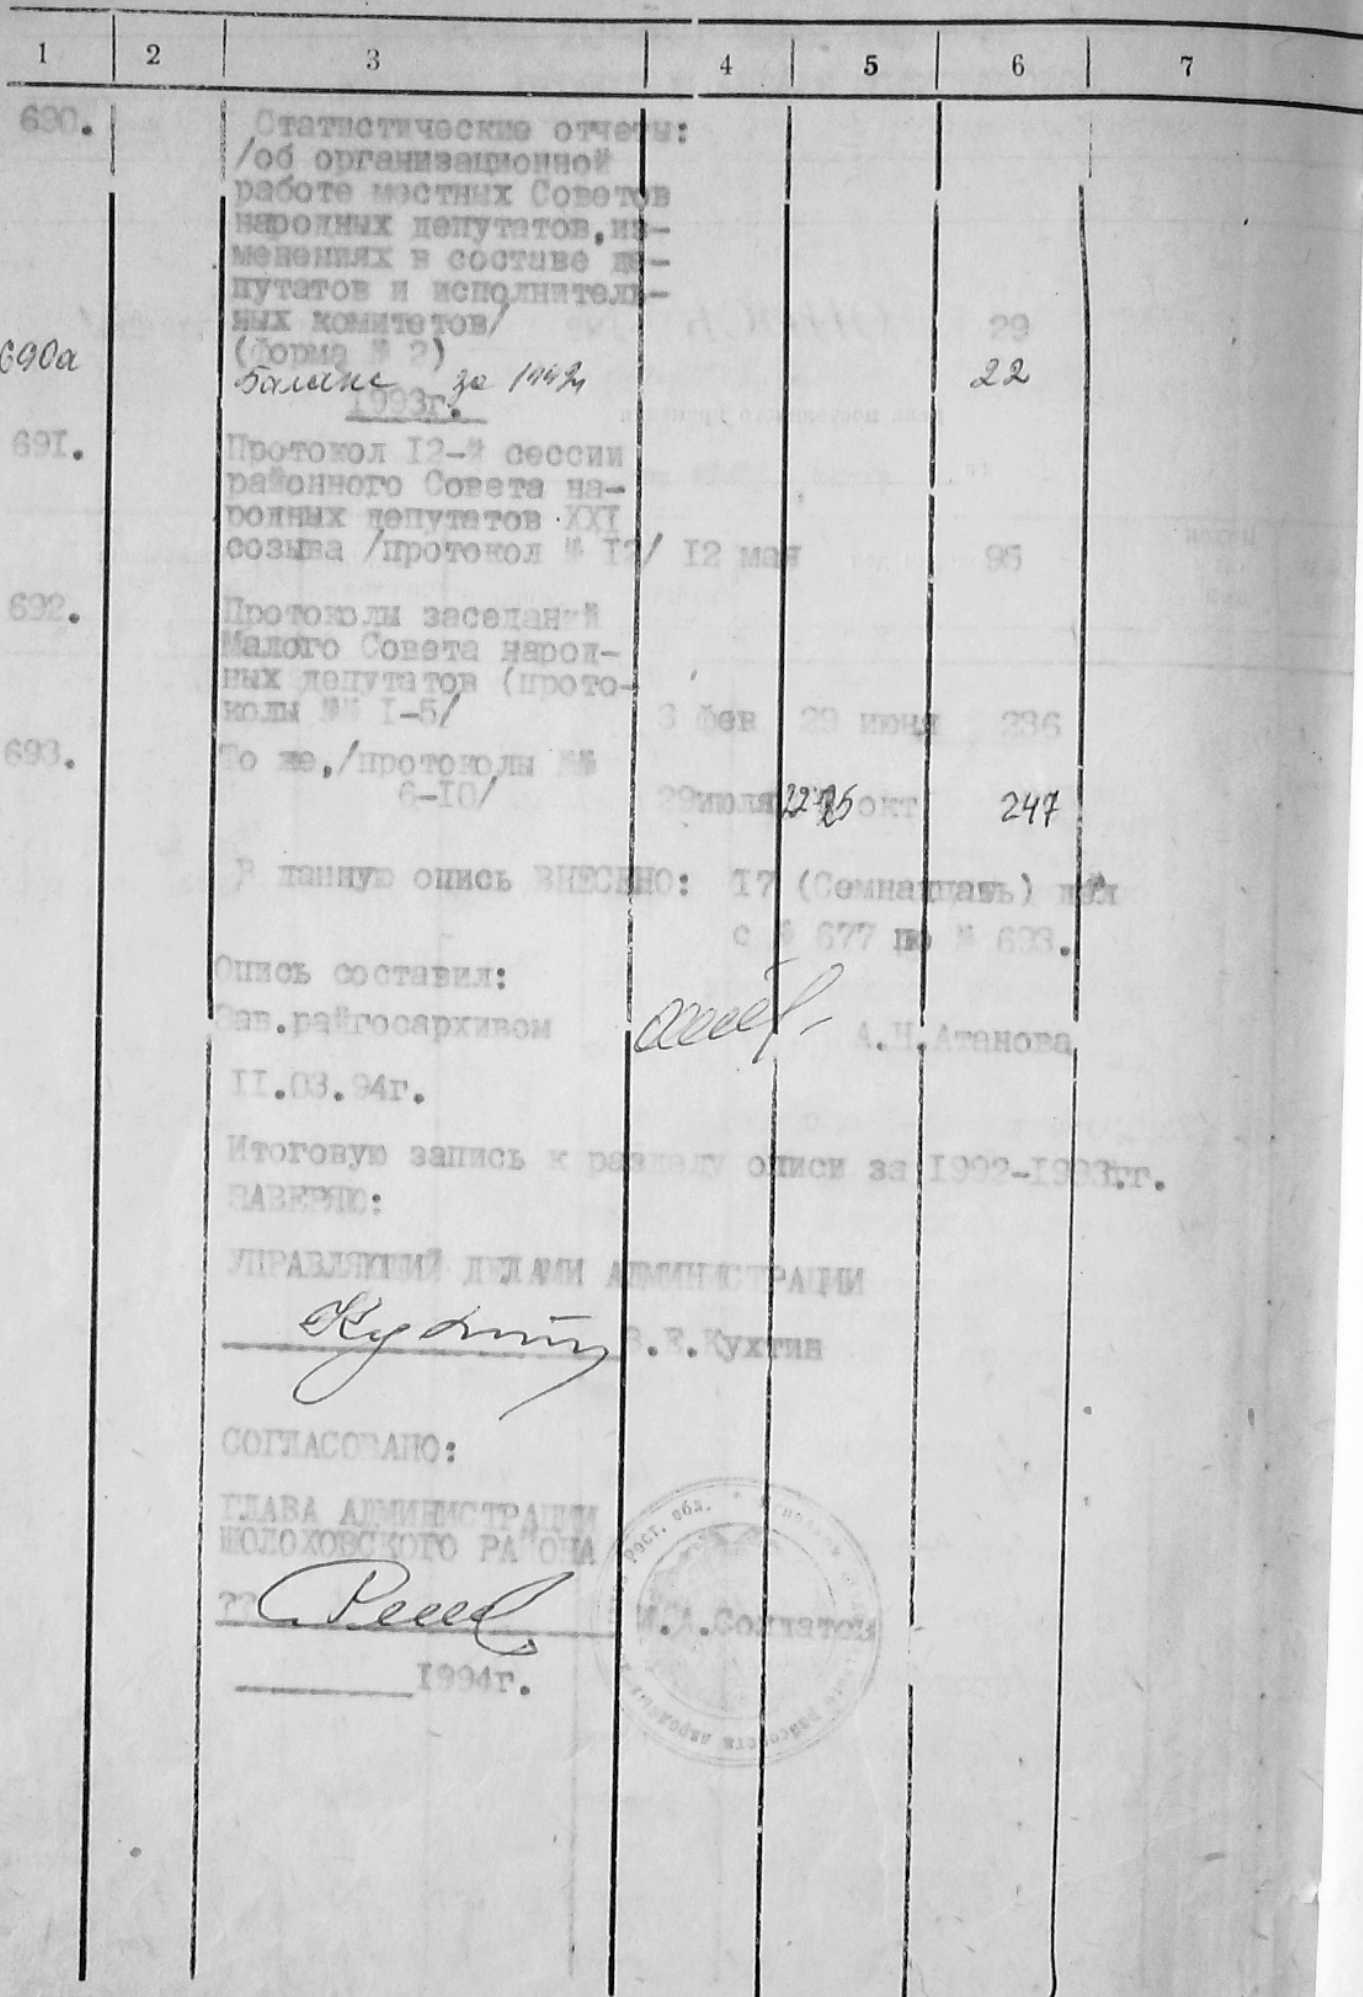 1 2 3 4 5 6 7
690. Статистические отчеты:
/об организационной
работе местных Советов
народных депутатов,из-
менениях в составе де-
путатов и исполнитель-
ных комитетов/ 29
(форма № 2)
690а Баланс за 1992г 22
1993г.
691. Протокол 12-й сессии
районного Совета на-
родных депутатов XXI
созыва /протокол № 12/ 12 мая 95
692. Протоколы заседаний
Малого Совета народ-
ных депутатов (прото-
колы №№ 1-5/ 3 фев 29 июня 236
693. То же,/протоколы №№
6-10/ 29июля 25 окт 247
В данную опись ВНЕСЕНО: 17 (Семнадцать) дел
с № 677 по № 693.
Опись составил:
Зав.райгосархивом А.Н.Атанова
11.03.94г.
Итоговую запись к разделу описи за 1992-1993гг.
ЗАВЕРЯЮ:
УПРАВЛЯЮЩИЙ ДЕЛАМИ АДМИНИСТРАЦИИ
В.Е.Кухтин
СОГЛАСОВАНО:
ГЛАВА АДМИНИСТРАЦИИ
ШОЛОХОВСКОГО РАЙОНА
Солдатов
1994г.
Рост. обл.
райсовета народных